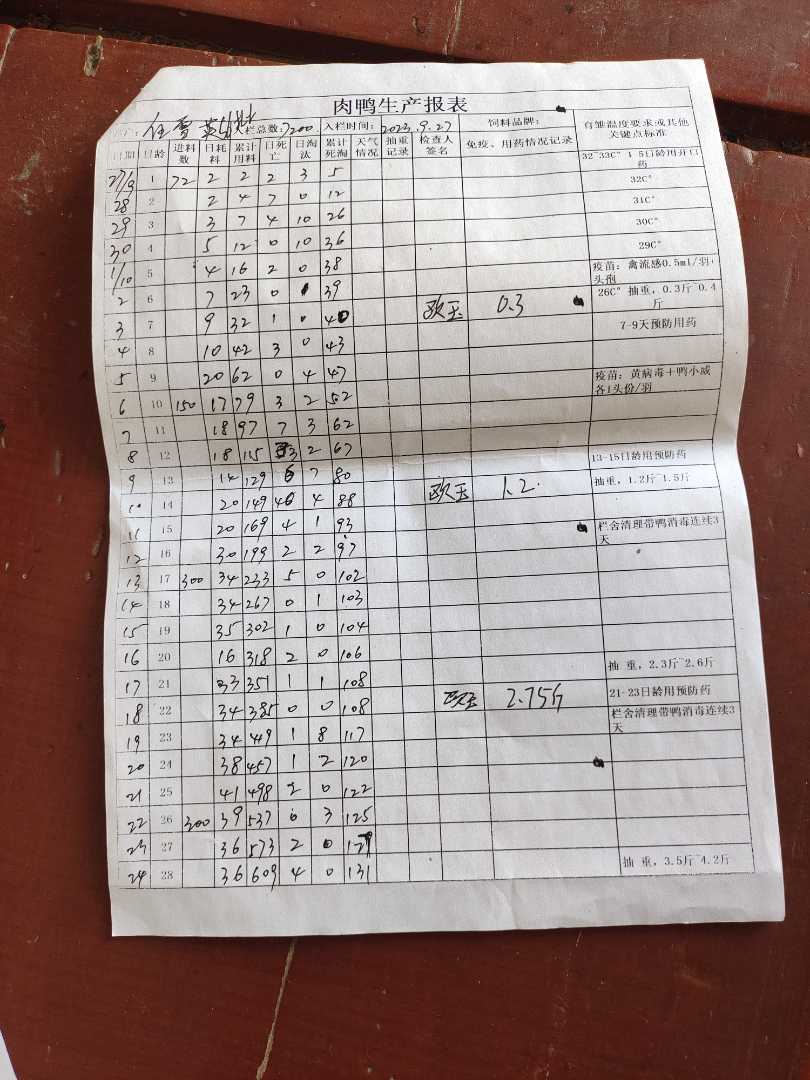 肉鸭生产报表
任雪英 栏总数:7200. 入栏时间: 2023.9.27 饲料品牌: 育雏温度要求或其他关键点标准
日期 日龄 进料数 日耗料 累计用料 日死亡 日淘汰 累计死淘 天气情况 抽重记录 检查人签名 免疫、用药情况记录
27/9 1 72 2 2 2 3 5 32~33C° 1-5日龄用开口药
28 2 2 4 7 0 12 32C°
29 3 3 7 4 10 26 31C°
30 4 5 12 0 10 36 30C°
1/10 5 4 16 2 0 38 29C°
2 6 7 23 0 39 疫苗: 禽流感0.5ml/羽·头孢
3 7 9 32 1 0 40 欧玉 0.3 26C° 抽重, 0.3斤~0.4斤
4 8 10 42 3 0 43 7-9天预防用药
5 9 20 62 0 4 47
6 10 150 17 79 3 2 52 疫苗: 黄病毒+鸭小威各1头份/羽
7 11 18 97 7 3 62
8 12 18 115 3 2 67
9 13 14 129 6 7 80 13-15日龄用预防药
10 14 20 149 4 4 88 欧玉 1.2. 抽重, 1.2斤~1.5斤
11 15 20 169 4 1 93
12 16 30 199 2 2 97 栏舍清理带鸭消毒连续3天
13 17 300 34 233 5 0 102
14 18 34 267 0 1 103
15 19 35 302 1 0 104
16 20 16 318 2 0 106
17 21 33 351 1 1 108 抽 重, 2.3斤~2.6斤
18 22 34 385 0 0 108 欧玉 2.75斤 21-23日龄用预防药
19 23 34 419 1 8 117 栏舍清理带鸭消毒连续3天
20 24 38 457 1 2 120
21 25 41 498 2 0 122
22 26 300 39 537 0 3 125
23 27 36 573 2 0 127
24 28 36 609 4 0 131 抽 重, 3.5斤~4.2斤